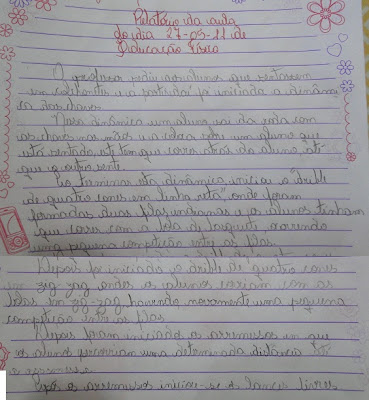 Relatório da aula
do dia 27-05-11 de
Educação Física
O professor pediu aos alunos que sentassem
em e a partida foi iniciando a dinâmi
ca das chaves.
Nessa dinâmica um aluno sai da roda com
as chaves nas mãos e a coloca um aluno que
está sentado, ele tem que correr atrás do aluno, até
que o outro sente.
Ao terminar esta dinâmica, iniciou o "drible
de quatro cones em linha reta", onde foram
formadas duas filas indianas e os alunos tinham
que correr com a bola de basquete, ocorrendo
uma pequena competição entre as filas.
Depois foi iniciado o drible de quatro cones
zig-zag, onde os alunos corriam com as
bolas em zig-zag havendo novamente uma pequena
competição entre as filas
Depois foram iniciados os arremessos em que
os alunos percorriam uma determinada distância
e
Após os arremessos iniciou-se os lances livres